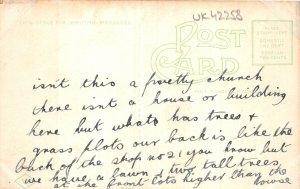 THIS SPACE FOR WRITING MESSAGES
UK42258
POST
CARD
isn't this a pretty church
there isnt a house or building
here but whats has trees &
grass plots our back is like the
back of the shop no 21 you know but
we have a lawn & two tall trees
at the front lots higher than the
house